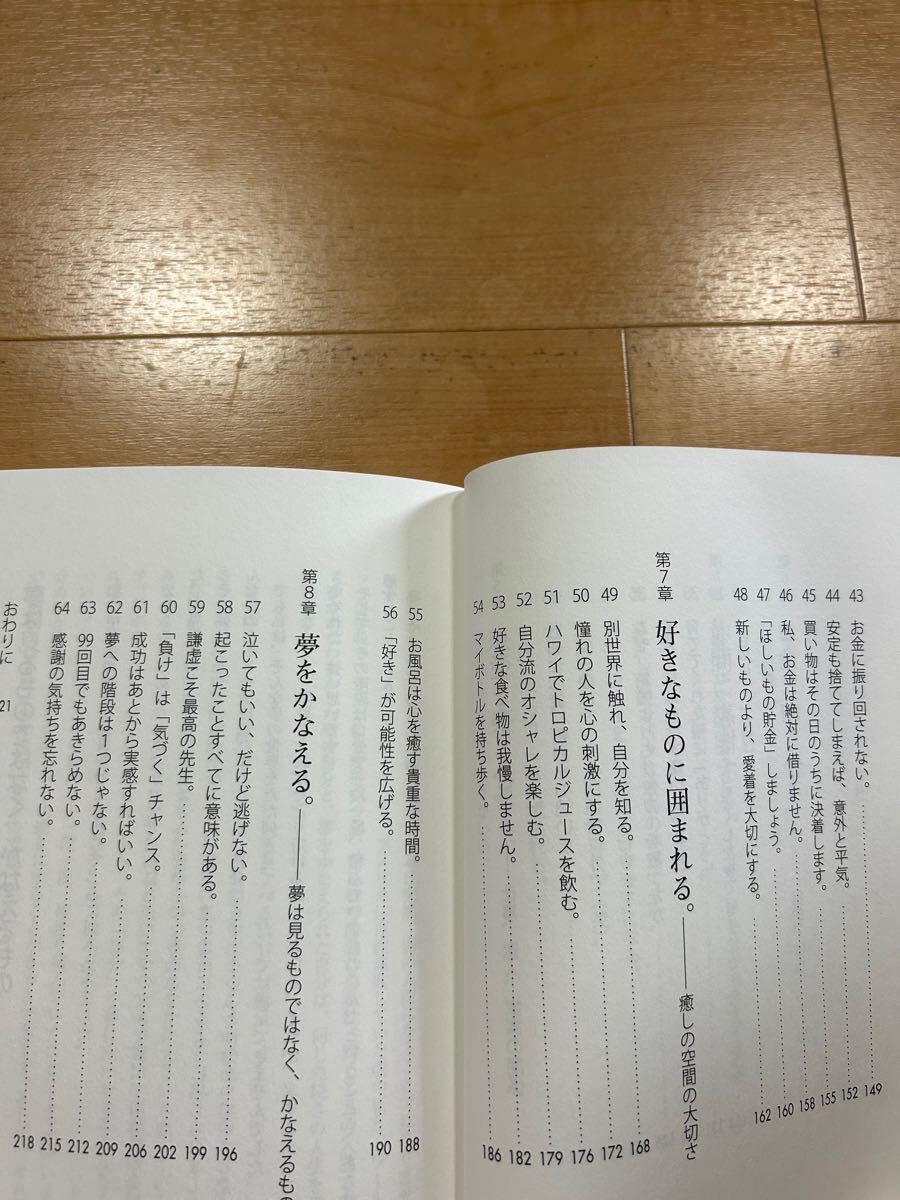 43 お金に振り回されない。 149
44 安定も捨ててしまえば、意外と平気。 152
45 買い物はその日のうちに決着します。 155
46 私、お金は絶対に借りません。 158
47 「ほしいもの貯金」しましょう。 160
48 新しいものより、愛着を大切にする。 162
第7章 好きなものに囲まれる。――癒しの空間の大切さ
49 別世界に触れ、自分を知る。 168
50 憧れの人を心の刺激にする。 172
51 ハワイでトロピカルジュースを飲む。 176
52 自分流のオシャレを楽しむ。 179
53 好きな食べ物は我慢しません。 182
54 マイボトルを持ち歩く。 186
55 お風呂は心を癒す貴重な時間。 188
56 「好き」が可能性を広げる。 190
第8章 夢をかなえる。――夢は見るものではなく、かなえるもの
57 泣いてもいい、だけど逃げない。 196
58 起こったことすべてに意味がある。 199
59 謙虚こそ最高の先生。 202
60 「負け」は「気づく」チャンス。 206
61 成功はあとから実感すればいい。 209
62 夢への階段は1つじゃない。 212
63 99回目でもあきらめない。 215
64 感謝の気持ちを忘れない。 218
おわりに 21